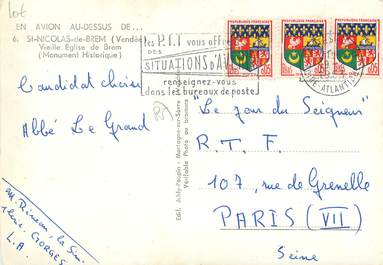 Lot
EN AVION AU-DESSUS DE...
6. St-NICOLAS-de-BREM (Vendée)
Vieille Eglise de Brem
(Monument Historique)
les P.T.T vous offrent
DES
SITUATIONS d'AV
renseignez-vous
dans les bureaux de poste!
REPUBLIQUE FRANÇAISE
REPUBLIQUE FRANÇAISE
REPUBLIQUE FRANÇAISE
0,05
0,05
0,05
LOIRE-ATLANTIQUE
Candidat choisi
Abbé Le Grand
Edit. Jehly-Poupin - Mortagne-sur-Sèvre
Véritable Photo au bromure
"Le jour du Seigneur"
R.T.F.
107, rue de Grenelle
PARIS (VII)
Seine
GORGES
L.A.